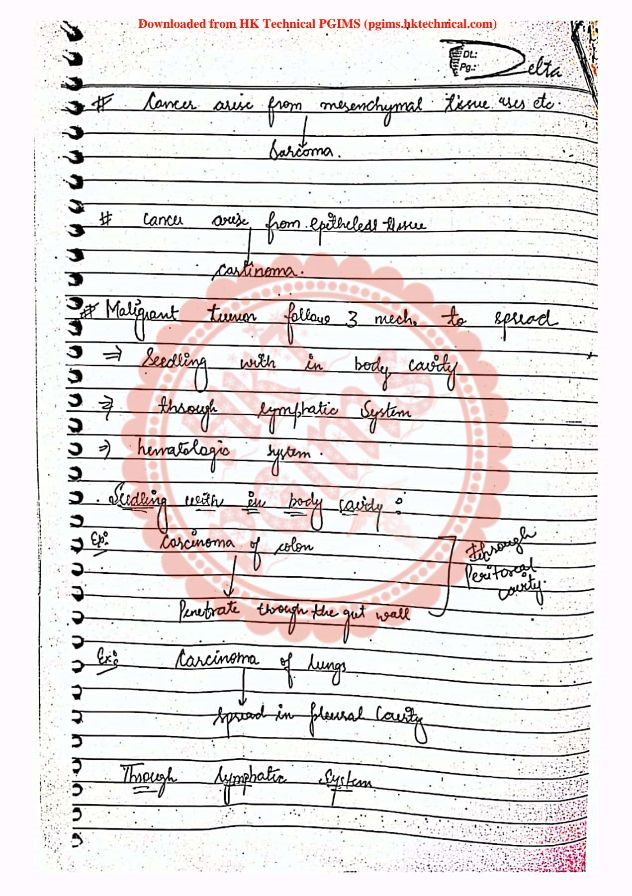 Downloaded from HK Technical PGIMS (pgims.hktechnical.com)
DL:
Pg.:
Delta
# Cancer arise from mesenchymal tissue etc.
Sarcoma.
# Cancer arise from epitheleal tissue
carcinoma.
# Malignant tumor follow 3 mech. to spread
⇒ Seedling with in body cavity
⇒ through lymphatic System
⇒ hematologic system.
. Seedling with in body cavity:
Ex: Carcinoma of colon
Penetrate through the gut wall
through
Peritoreal
cavity.
Ex: Carcinoma of lungs
spread in pleural cavity
Through lymphatic System